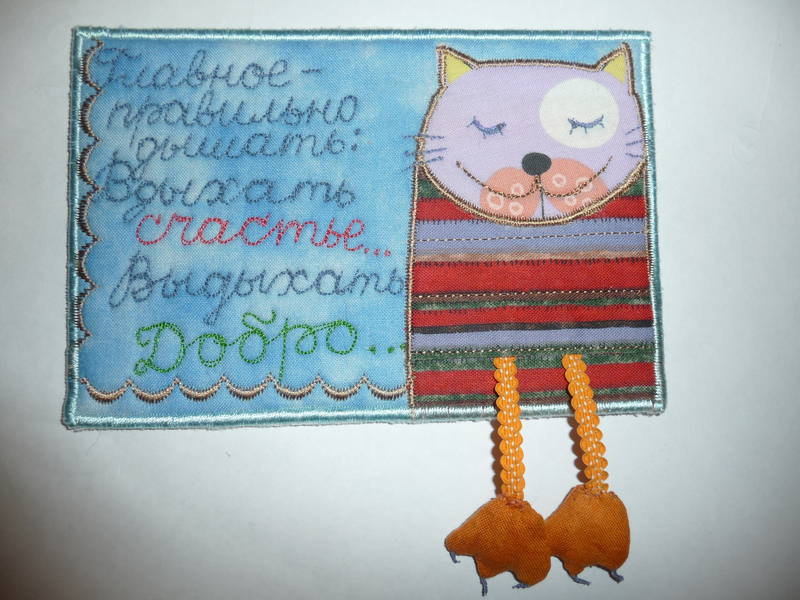 Главное -
правильно
дышать:
Вдыхать
счастье...
Выдыхать
Добро...